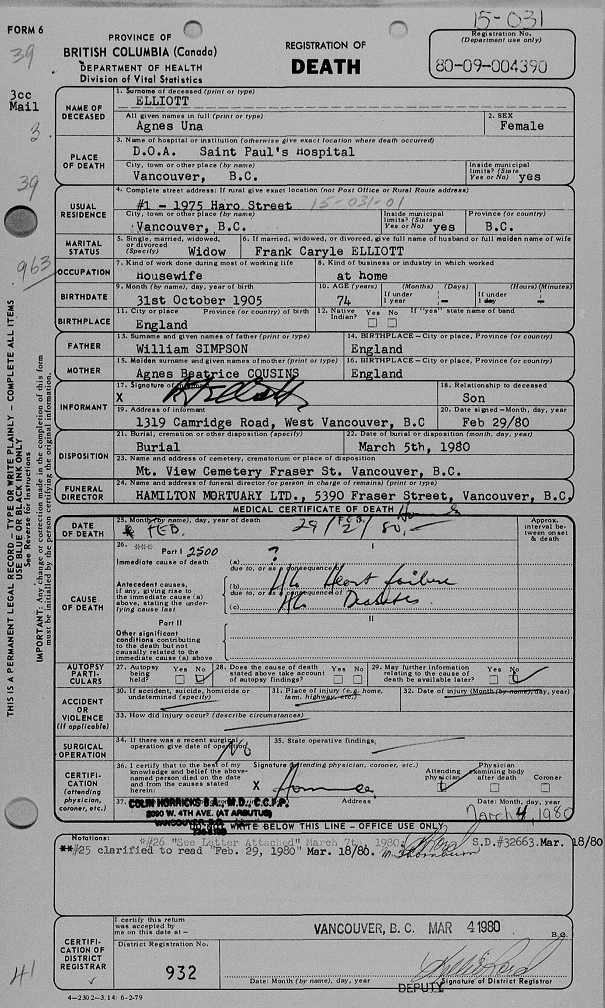 FORM 6
15-031
39
PROVINCE OF
BRITISH COLUMBIA (Canada)
DEPARTMENT OF HEALTH
Division of Vital Statistics
REGISTRATION OF
DEATH
Registration No.
(Department use only)
80-09-004390
3cc
Mail
3
39
963
NAME OF
DECEASED
1. Surname of deceased (print or type)
ELLIOTT
All given names in full (print or type)
Agnes Una
2. SEX
Female
PLACE
OF DEATH
3. Name of hospital or institution (otherwise give exact location where death occurred)
D.O.A. Saint Paul's Hospital
City, town or other place (by name)
Vancouver, B.C.
Inside municipal
limits? (State
Yes or No) yes
USUAL
RESIDENCE
4. Complete street address: If rural give exact location (not Post Office or Rural Route address)
#1 - 1975 Haro Street 15-031-01
City, town or other place (by name)
Vancouver, B.C.
Inside municipal
limits? (State
Yes or No) yes
Province (or country)
B.C.
MARITAL
STATUS
5. Single, married, widowed,
or divorced
(Specify) Widow
6. If married, widowed, or divorced, give full name of husband or full maiden name of wife
Frank Caryle ELLIOTT
OCCUPATION
7. Kind of work done during most of working life
Housewife
8. Kind of business or industry in which worked
at home
BIRTHDATE
9. Month (by name), day, year of birth
31st October 1905
10. AGE (years)
74
(Months) (Days)
If under
1 year
(Hours) (Minutes)
If under
1 day
BIRTHPLACE
11. City or place Province (or country) of birth
England
12. Native
Indian?
Yes No
If "yes" state name of band
FATHER
13. Surname and given names of father (print or type)
William SIMPSON
14. BIRTHPLACE - City or place, Province (or country)
England
MOTHER
15. Maiden surname and given names of mother (print or type)
Agnes Beatrice COUSINS
16. BIRTHPLACE - City or place, Province (or country)
England
INFORMANT
17. Signature of
X
18. Relationship to deceased
Son
19. Address of informant
1319 Camridge Road, West Vancouver, B.C
20. Date signed - Month, day, year
Feb 29/80
DISPOSITION
21. Burial, cremation or other disposition (specify)
Burial
22. Date of burial or disposition (month, day, year)
March 5th, 1980
23. Name and address of cemetery, crematorium or place of disposition
Mt. View Cemetery Fraser St. Vancouver, B.C.
FUNERAL
DIRECTOR
24. Name and address of funeral director (or person in charge of remains) (print or type)
HAMILTON MORTUARY LTD., 5390 Fraser Street, Vancouver, B.C.
MEDICAL CERTIFICATE OF DEATH
DATE
OF DEATH
25. Month (by name), day, year of death
FEB. 29/ FEB. 2/ 80.
Approx.
interval be-
tween onset
& death
CAUSE
OF DEATH
26. ***
Part I 2500
I
Immediate cause of death
(a) ?
due to, or as a consequence of
Antecedent causes,
if any, giving rise to
the immediate cause (a)
above, stating the under-
lying cause last
(b) Hx Heart failure
due to, or as a consequence of
(c) Hx Diabetes.
Part II
II
Other significant
conditions contributing
to the death but not
causally related to the
immediate cause (a) above
AUTOPSY
PARTI-
CULARS
27. Autopsy
being
held?
Yes No
28. Does the cause of death
stated above take account
of autopsy findings?
Yes No
29. May further information
relating to the cause of
death be available later?
Yes No
ACCIDENT
OR
VIOLENCE
(if applicable)
30. If accident, suicide, homicide or
undetermined (specify)
31. Place of injury (e.g. home,
farm, highway, etc.)
32. Date of injury (Month (by name), day, year)
33. How did injury occur? (describe circumstances)
SURGICAL
OPERATION
34. If there was a recent surgical
operation give date of operation
No
35. State operative findings,
CERTIFI-
CATION
(attending
physician,
coroner, etc.)
36. I certify that to the best of my
knowledge and belief the above-
named person died on the date
and from the causes stated
herein:
Signature (attending physician, coroner, etc.)
X
Attending
physician
Physician
examining body
after death
Coroner
37. COLIN HORRICKS B.A., M.D., C.C.F.P.
2090 W. 4TH AVE. (AT ARBUTUS)
VANCOUVER, B.C.
Address
Date: Month, day, year
March 4, 1980
WRITE BELOW THIS LINE - OFFICE USE ONLY
Notations:
*#26 "See Letter Attached" March 7th, 1980. S.D.#32663. Mar. 18/80
**#25 clarified to read "Feb. 29, 1980" Mar. 18/80.
CERTIFI-
CATION OF
DISTRICT
REGISTRAR
I certify this return
was accepted by
me on this date at -
VANCOUVER, B. C. MAR 4 1980
B.C.
District Registration No.
932
Date: Month (by name), day, year
DEPUTY Signature of District Registrar
41
4-2302-3.14: 6-2-79
THIS IS A PERMANENT LEGAL RECORD - TYPE OR WRITE PLAINLY - COMPLETE ALL ITEMS
USE BLUE OR BLACK INK ONLY
See Reverse for Instructions
IMPORTANT: Any change or correction made in the completion of this form
must be initialled by the person certifying the original information.